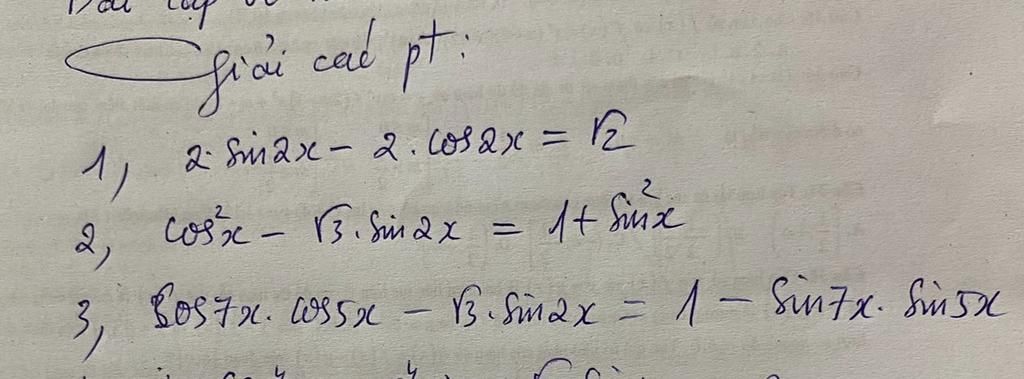 Giải các pt:
1, 2. sin2x - 2. cos2x = √2
2, cos²x - √3. sin2x = 1 + sin²x
3, cos7x. cos5x - √3. sin2x = 1 - sin7x. sin5x